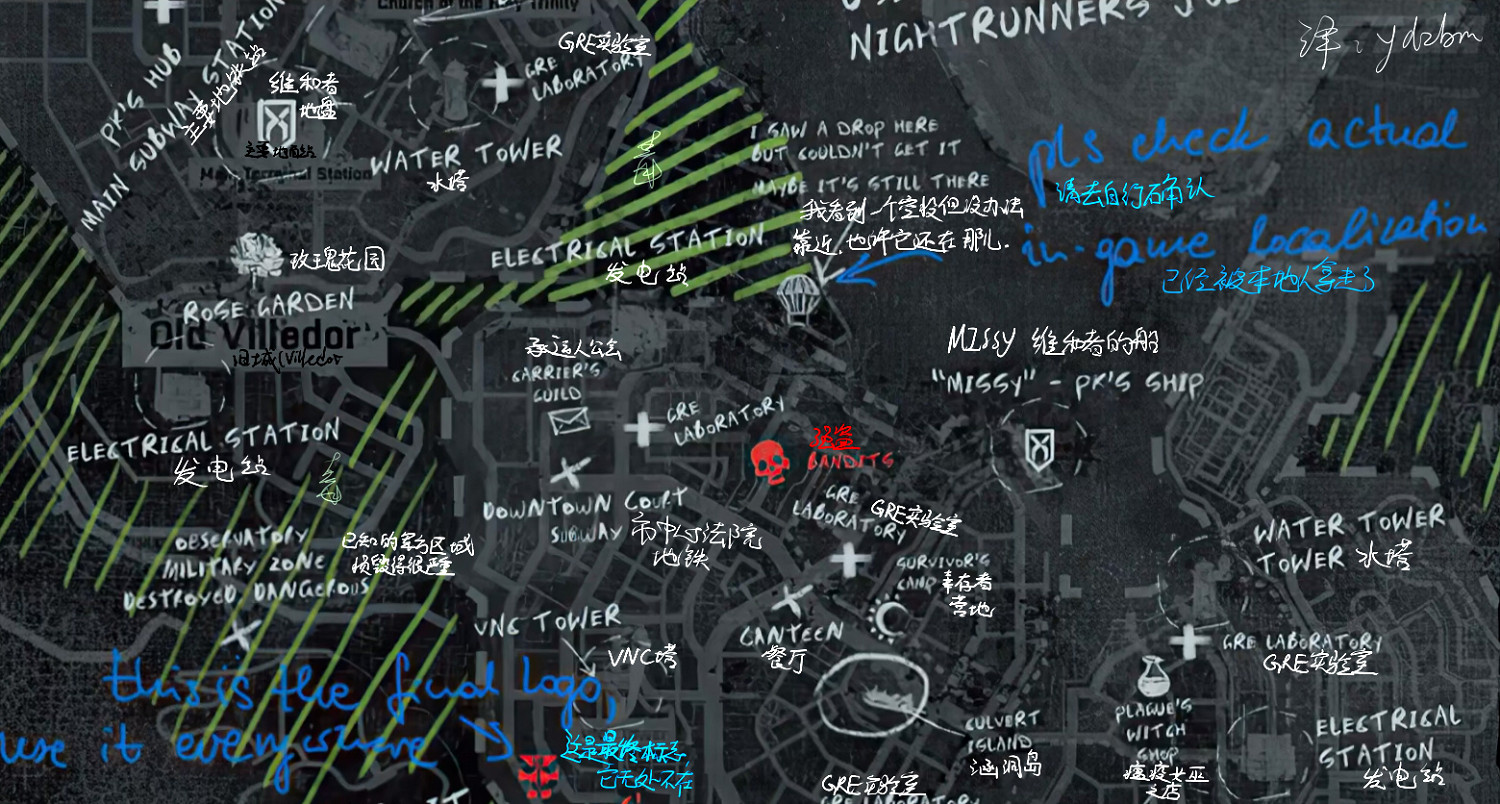 Church of the Holy Trinity
NIGHTRUNNERS
译：ydzbm
PK'S HUB
MAIN SUBWAY STATION
主要地铁站
维和者
地盘
GRE实验室
GRE
LABORATORY
主要地面站
Main Terminal Station
WATER TOWER
水塔
I SAW A DROP HERE
BUT COULDN'T GET IT
MAYBE IT'S STILL THERE
我看到一个空投但没办法
靠近，也许它还在那儿.
pls check actual
请去自行确认
in-game localization
已经被本地人拿走了
毒气
ELECTRICAL STATION
发电站
玫瑰花园
ROSE GARDEN
Old Villedor
旧城(Villedor
承运人公会
CARRIER'S
GUILD
GRE
LABORATORY
MISSY 维和者的船
"MISSY" - PK'S SHIP
强盗
BANDITS
ELECTRICAL STATION
发电站
毒气
DOWNTOWN COURT
SUBWAY 市中心法院
地铁
GRE
LABORATORY
GRE实验室
OBSERVATORY
MILITARY ZONE
DESTROYED DANGEROUS
已知的军方区域
损毁得很严重
SURVIVOR'S
CAMP 幸存者
营地
WATER TOWER
TOWER 水塔
VNC TOWER
VNC塔
CANTEEN
餐厅
GRE LABORATORY
GRE实验室
this is the final logo,
use it everywhere
这是最终标志，
它无处不在
CULVERT
ISLAND
涵洞岛
PLAGUE'S
WITCH
SHOP
瘟疫女巫
商店
ELECTRICAL
STATION
发电站
GRE实验室
GRE LABORATORY